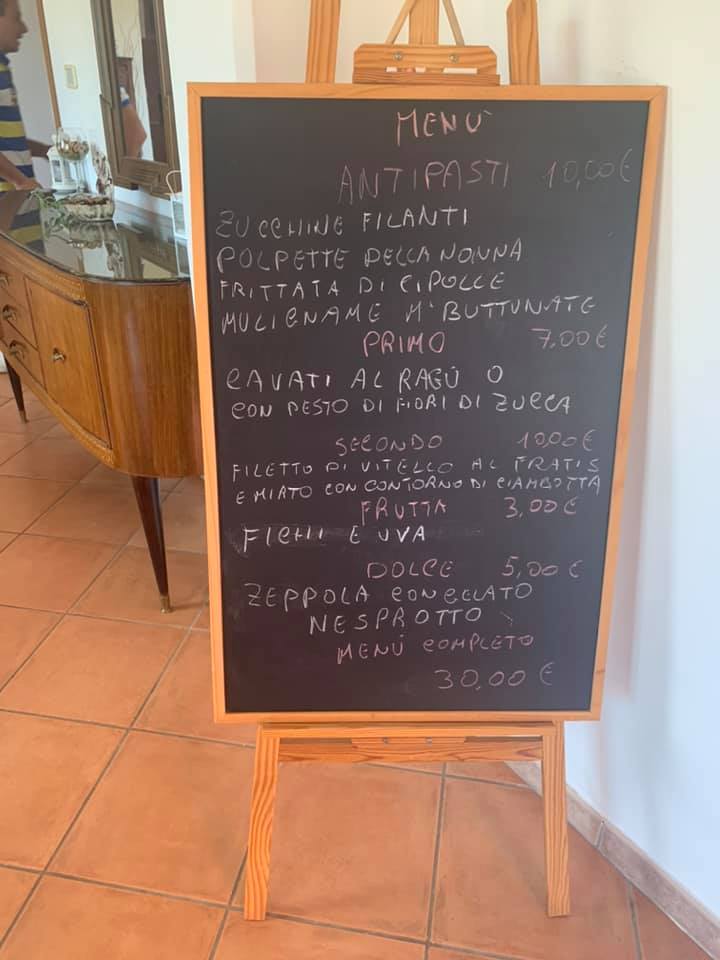 MENU'
ANTIPASTI 10,00€
ZUCCHINE FILANTI
POLPETTE DELLA NONNA
FRITTATA DI CIPOLLE
MULIGNAME M'BUTTUNATE
PRIMO 7,00€
CAVATI AL RAGÚ O
CON PESTO DI FIORI DI ZUCCA
SECONDO 10,00€
FILETTO DI VITELLO AL
E MIATO CON CONTORNO DI CIAMBOTTA
FRUTTA 3,00€
FICHI E UVA
DOLCE 5,00€
ZEPPOLA CON GELATO
NESPROTTO
MENÚ COMPLETO
30,00€